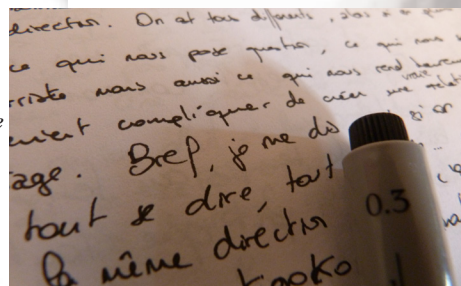 direction. On est tous différents, alors si
ce qui nous pose question, ce qui nous
triste mais aussi ce qui nous rend heureux
vraie
compliquer de créer une
Bref, je me dis si on
tout se dire, tout
la même direction
0.3